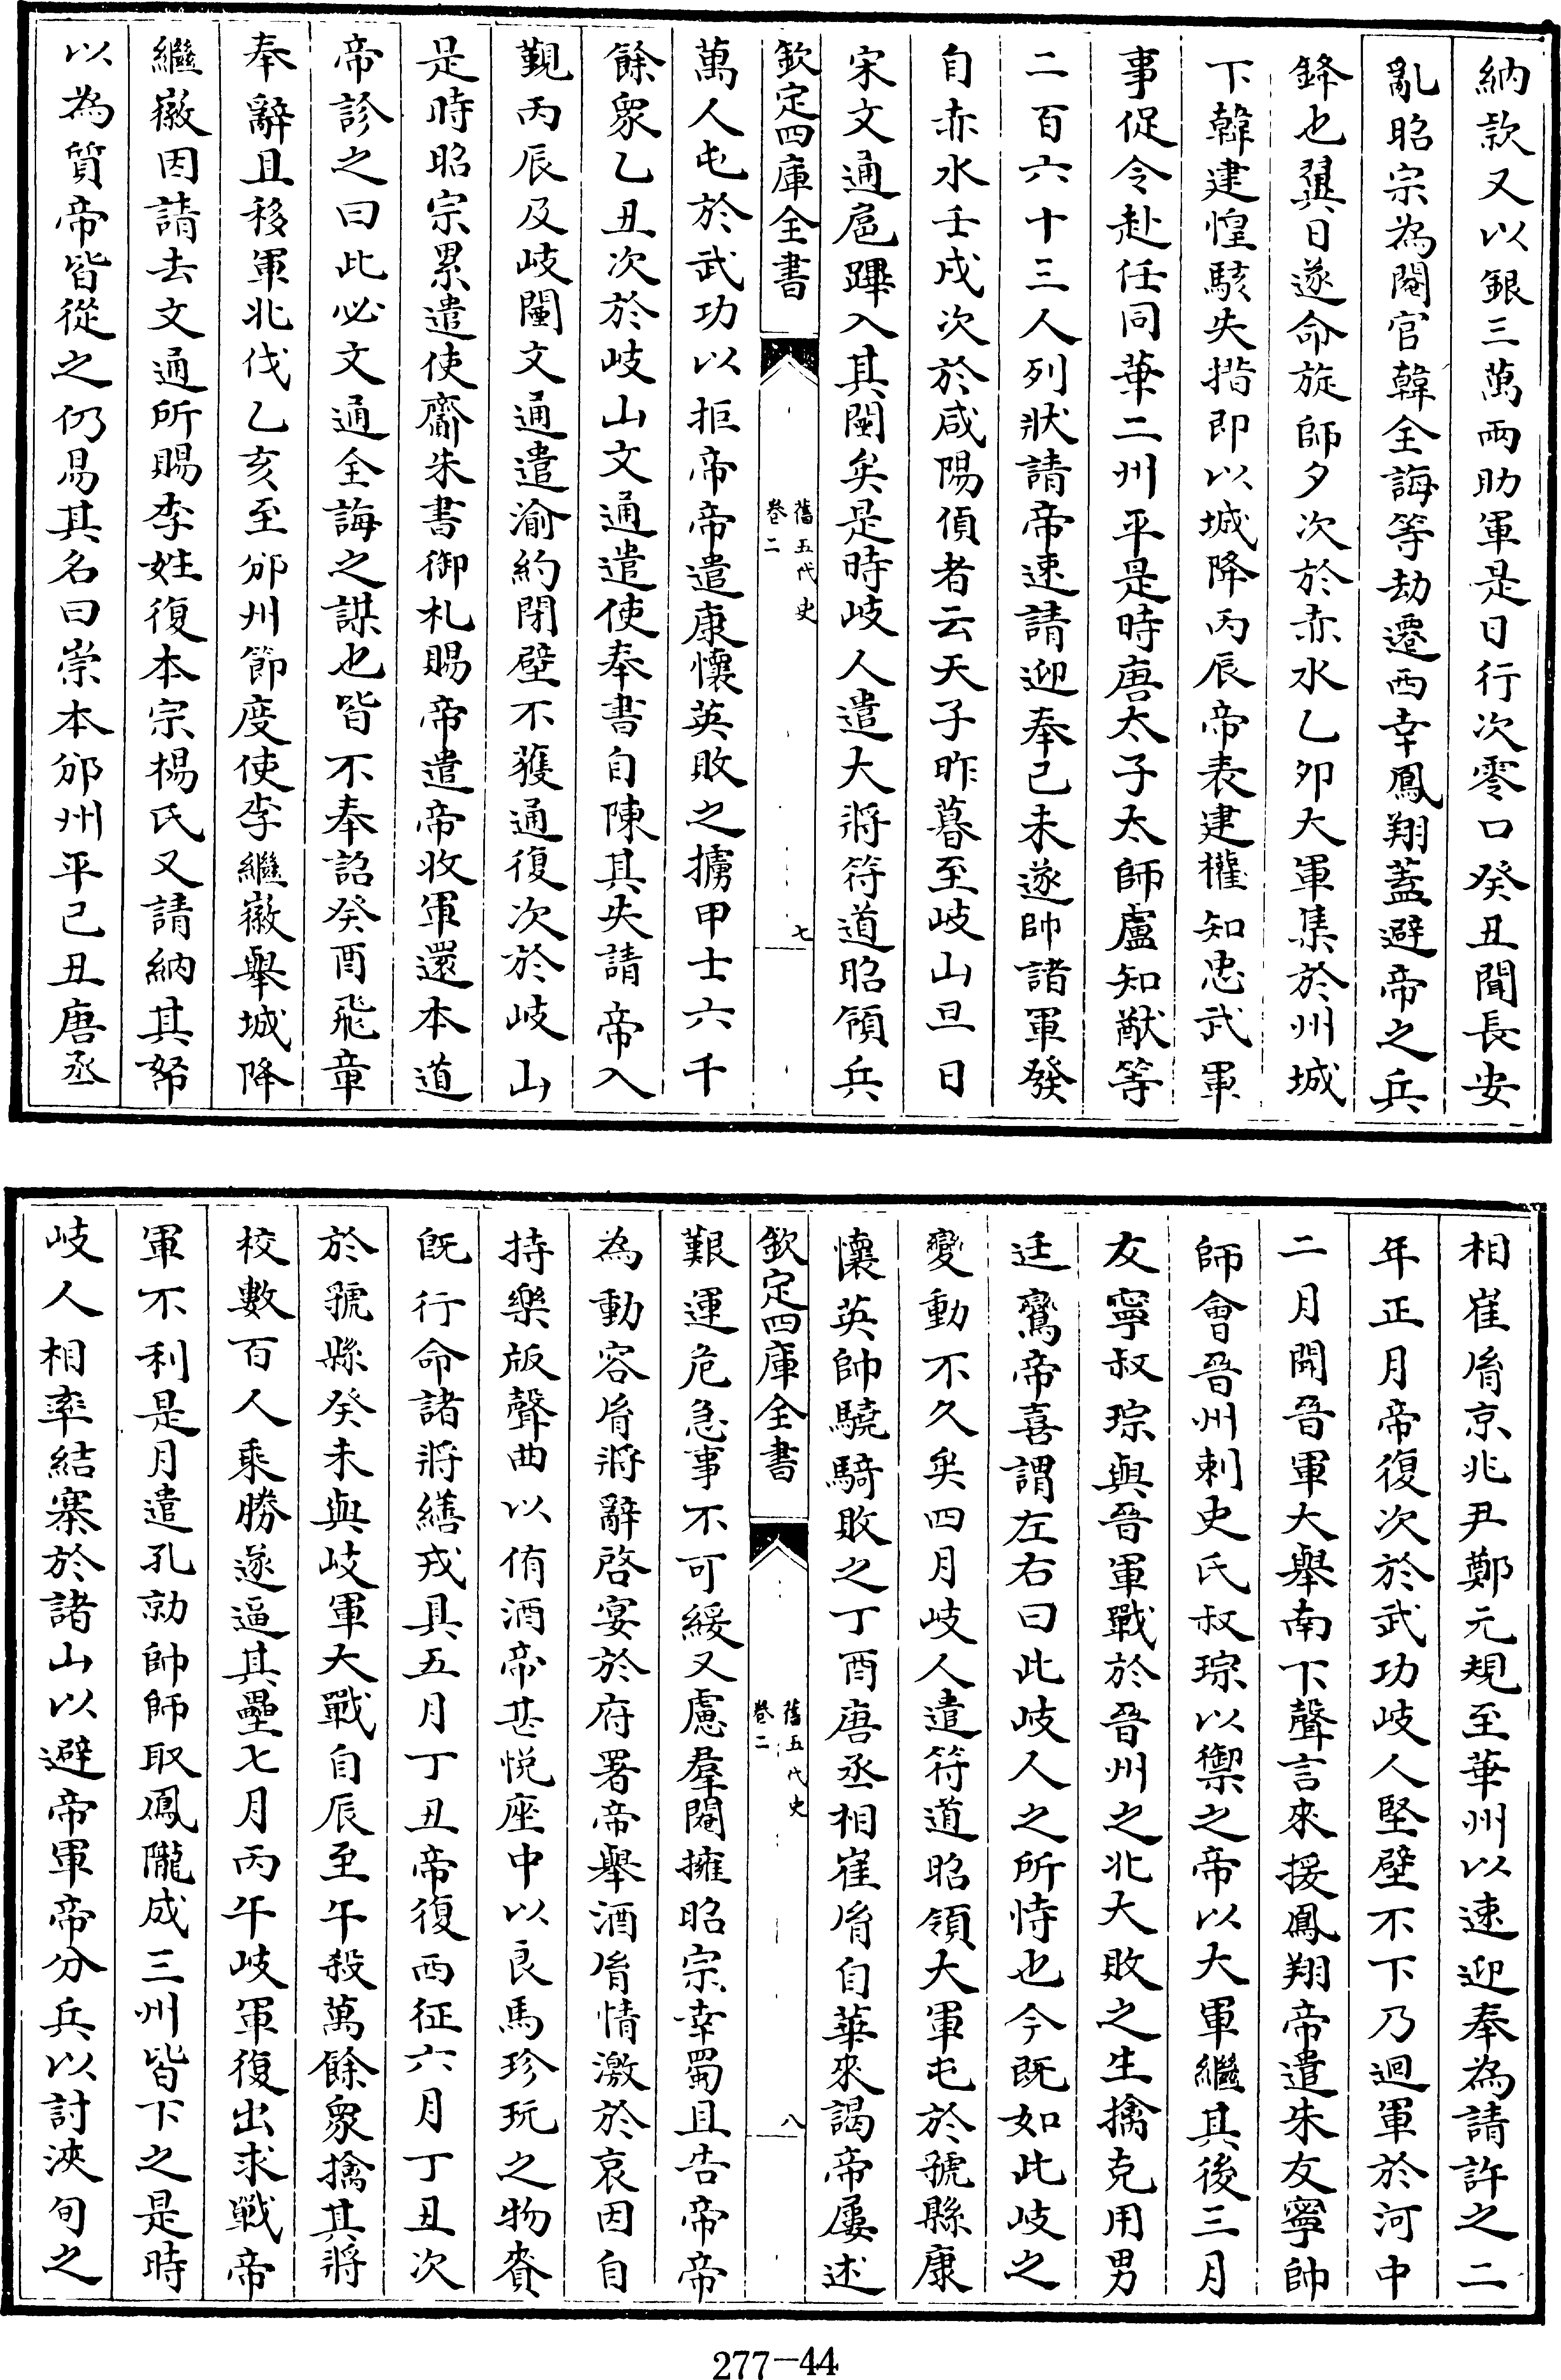 納款又以銀三萬兩助軍是日行次零口癸丑聞長安
亂昭宗為閹官韓全誨等劫遷西幸鳳翔蓋避帝之兵
鋒也翼日遂命旋師夕次於赤水乙卯大軍集於州城
下韓建惶駭失措即以城降丙辰帝表建權知忠武軍
事促令赴任同華二州平是時唐太子太師盧知猷等
二百六十三人列狀請帝速請迎奉己未遂帥諸軍發
自赤水壬戌次於咸陽偵者云天子昨暮至岐山旦日
宋文通扈蹕入其闉矣是時岐人遣大將符道昭領兵
欽定四庫全書
舊五代史
卷二
七
萬人屯於武功以拒帝帝遣康懷英敗之擄甲士六千
餘衆乙丑次於岐山文通遣使奉書自陳其失請帝入
覲丙辰及岐闉文通遣渝約閉壁不獲通復次於岐山
是時昭宗累遣使齎朱書御札賜帝遣帝收軍還本道
帝診之曰此必文通全誨之謀也皆不奉詔癸酉飛章
奉辭且移軍北伐乙亥至邠州節度使李繼徽舉城降
繼徽因請去文通所賜李姓復本宗楊氏又請納其帑
以為質帝皆從之仍易其名曰崇本邠州平己丑唐丞
相崔㣧京兆尹鄭元規至華州以速迎奉為請許之二
年正月帝復次於武功岐人堅壁不下乃迴軍於河中
二月聞晉軍大舉南下聲言來援鳳翔帝遣朱友寧帥
師會晉州刺史氏叔琮以禦之帝以大軍繼其後三月
友寧叔琮與晉軍戰於晉州之北大敗之生擒克用男
廷鸞帝喜謂左右曰此岐人之所恃也今既如此岐之
變動不久矣四月岐人遣符道昭領大軍屯於虢縣康
懷英帥驍騎敗之丁酉唐丞相崔㣧自華來謁帝屢述
欽定四庫全書
舊五代史
卷二
八
艱運危急事不可緩又慮羣閹擁昭宗幸蜀且告帝帝
為動容㣧將辭啓宴於府署帝舉酒㣧情激於哀因自
持樂版聲曲以侑酒帝甚悅座中以良馬珍玩之物賚
既行命諸將繕戎具五月丁丑帝復西征六月丁丑次
於虢縣癸未與岐軍大戰自辰至午殺萬餘衆擒其將
校數百人乘勝遂逼其壘七月丙午岐軍復出求戰帝
軍不利是月遣孔勍帥師取鳳隴成三州皆下之是時
岐人相率結寨於諸山以避帝軍帝分兵以討浹旬之
277-44